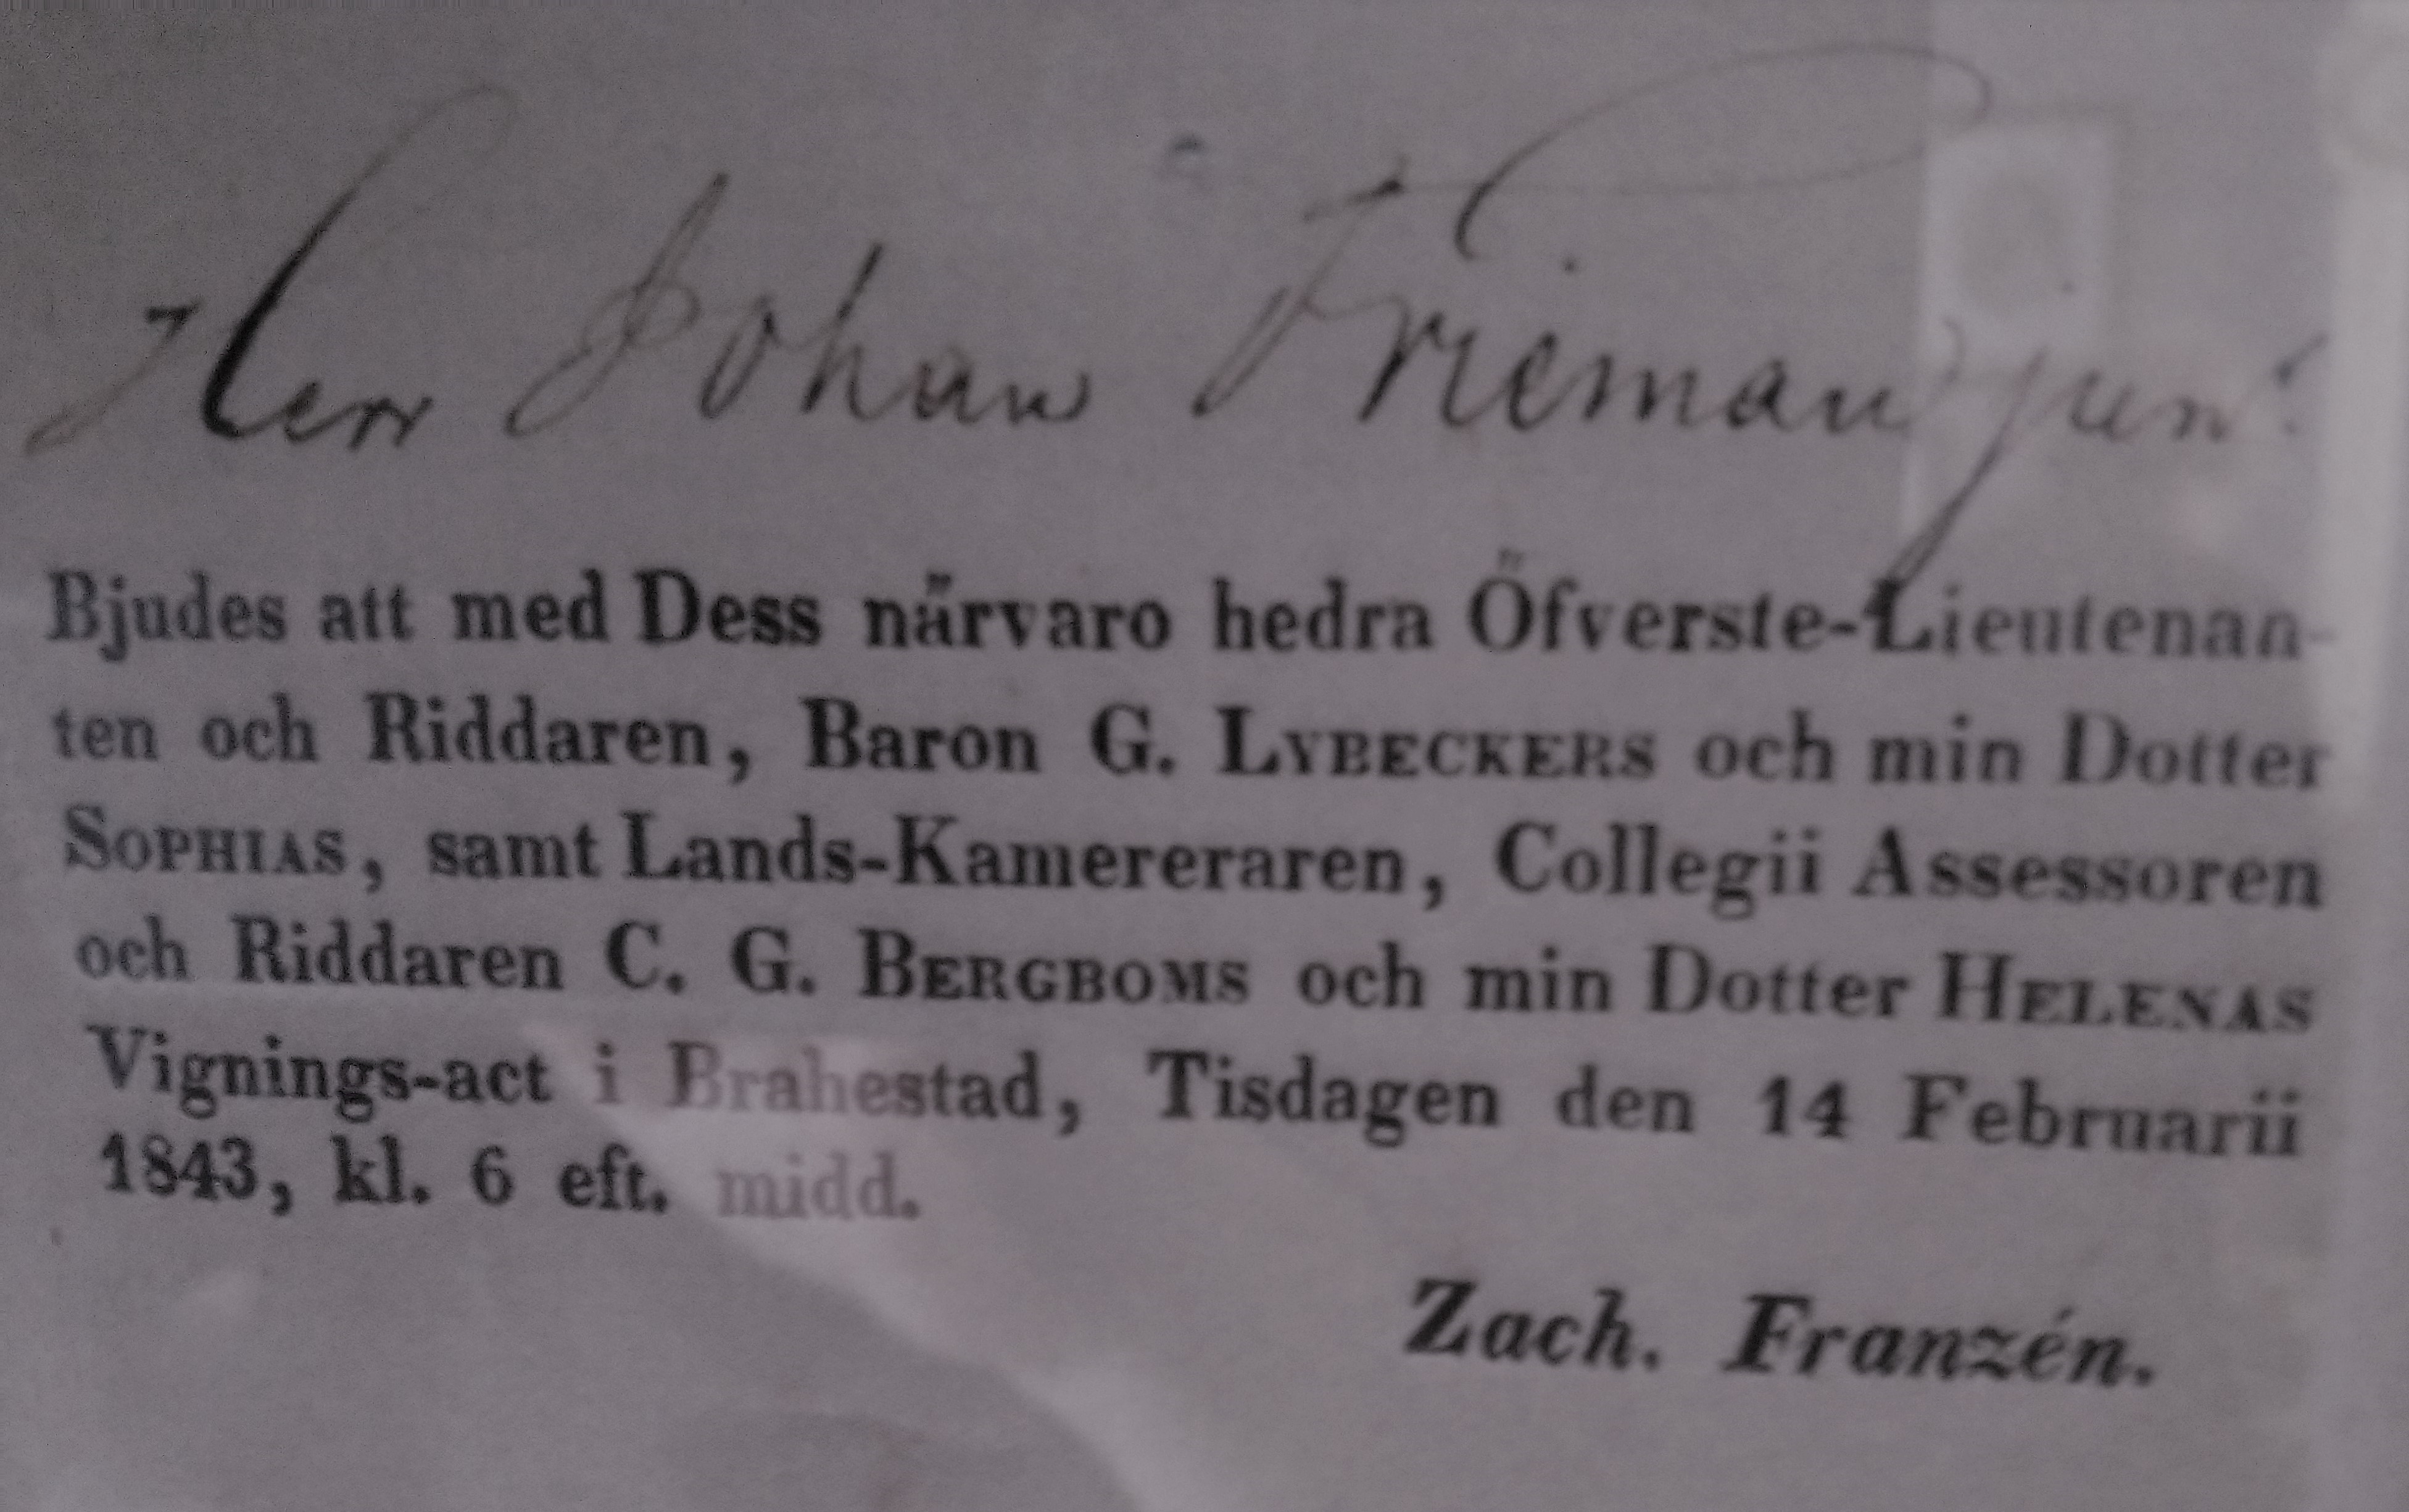 Herr Johan Frieman jun:
Bjudes att med Dess närvaro hedra Öfverste-Lieutenan-
ten och Riddaren, Baron G. LYBECKERS och min Dotter
SOPHIAS, samt Lands-Kamereraren, Collegii Assessoren
och Riddaren C. G. BERGBOMS och min Dotter HELENAS
Vignings-act i Brahestad, Tisdagen den 14 Februarii
1843, kl. 6 eft. midd.
Zach. Franzén.